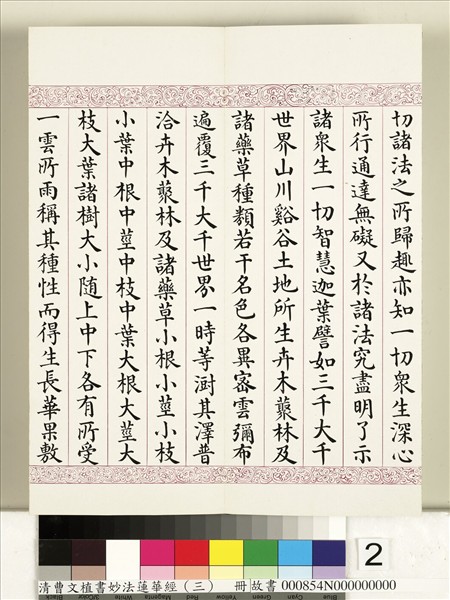 切諸法之所歸趣亦知一切衆生深心
所行通達無礙又於諸法究盡明了示
諸衆生一切智慧迦葉譬如三千大千
世界山川谿谷土地所生卉木藂林及
諸藥草種類若干名色各異密雲彌布
遍覆三千大千世界一時等澍其澤普
洽卉木藂林及諸藥草小根小莖小枝
小葉中根中莖中枝中葉大根大莖大
枝大葉諸樹大小随上中下各有所受
一雲所雨稱其種性而得生長華果敷
2
清曹文植書妙法蓮華經（三） 冊 故書 000854N000000000